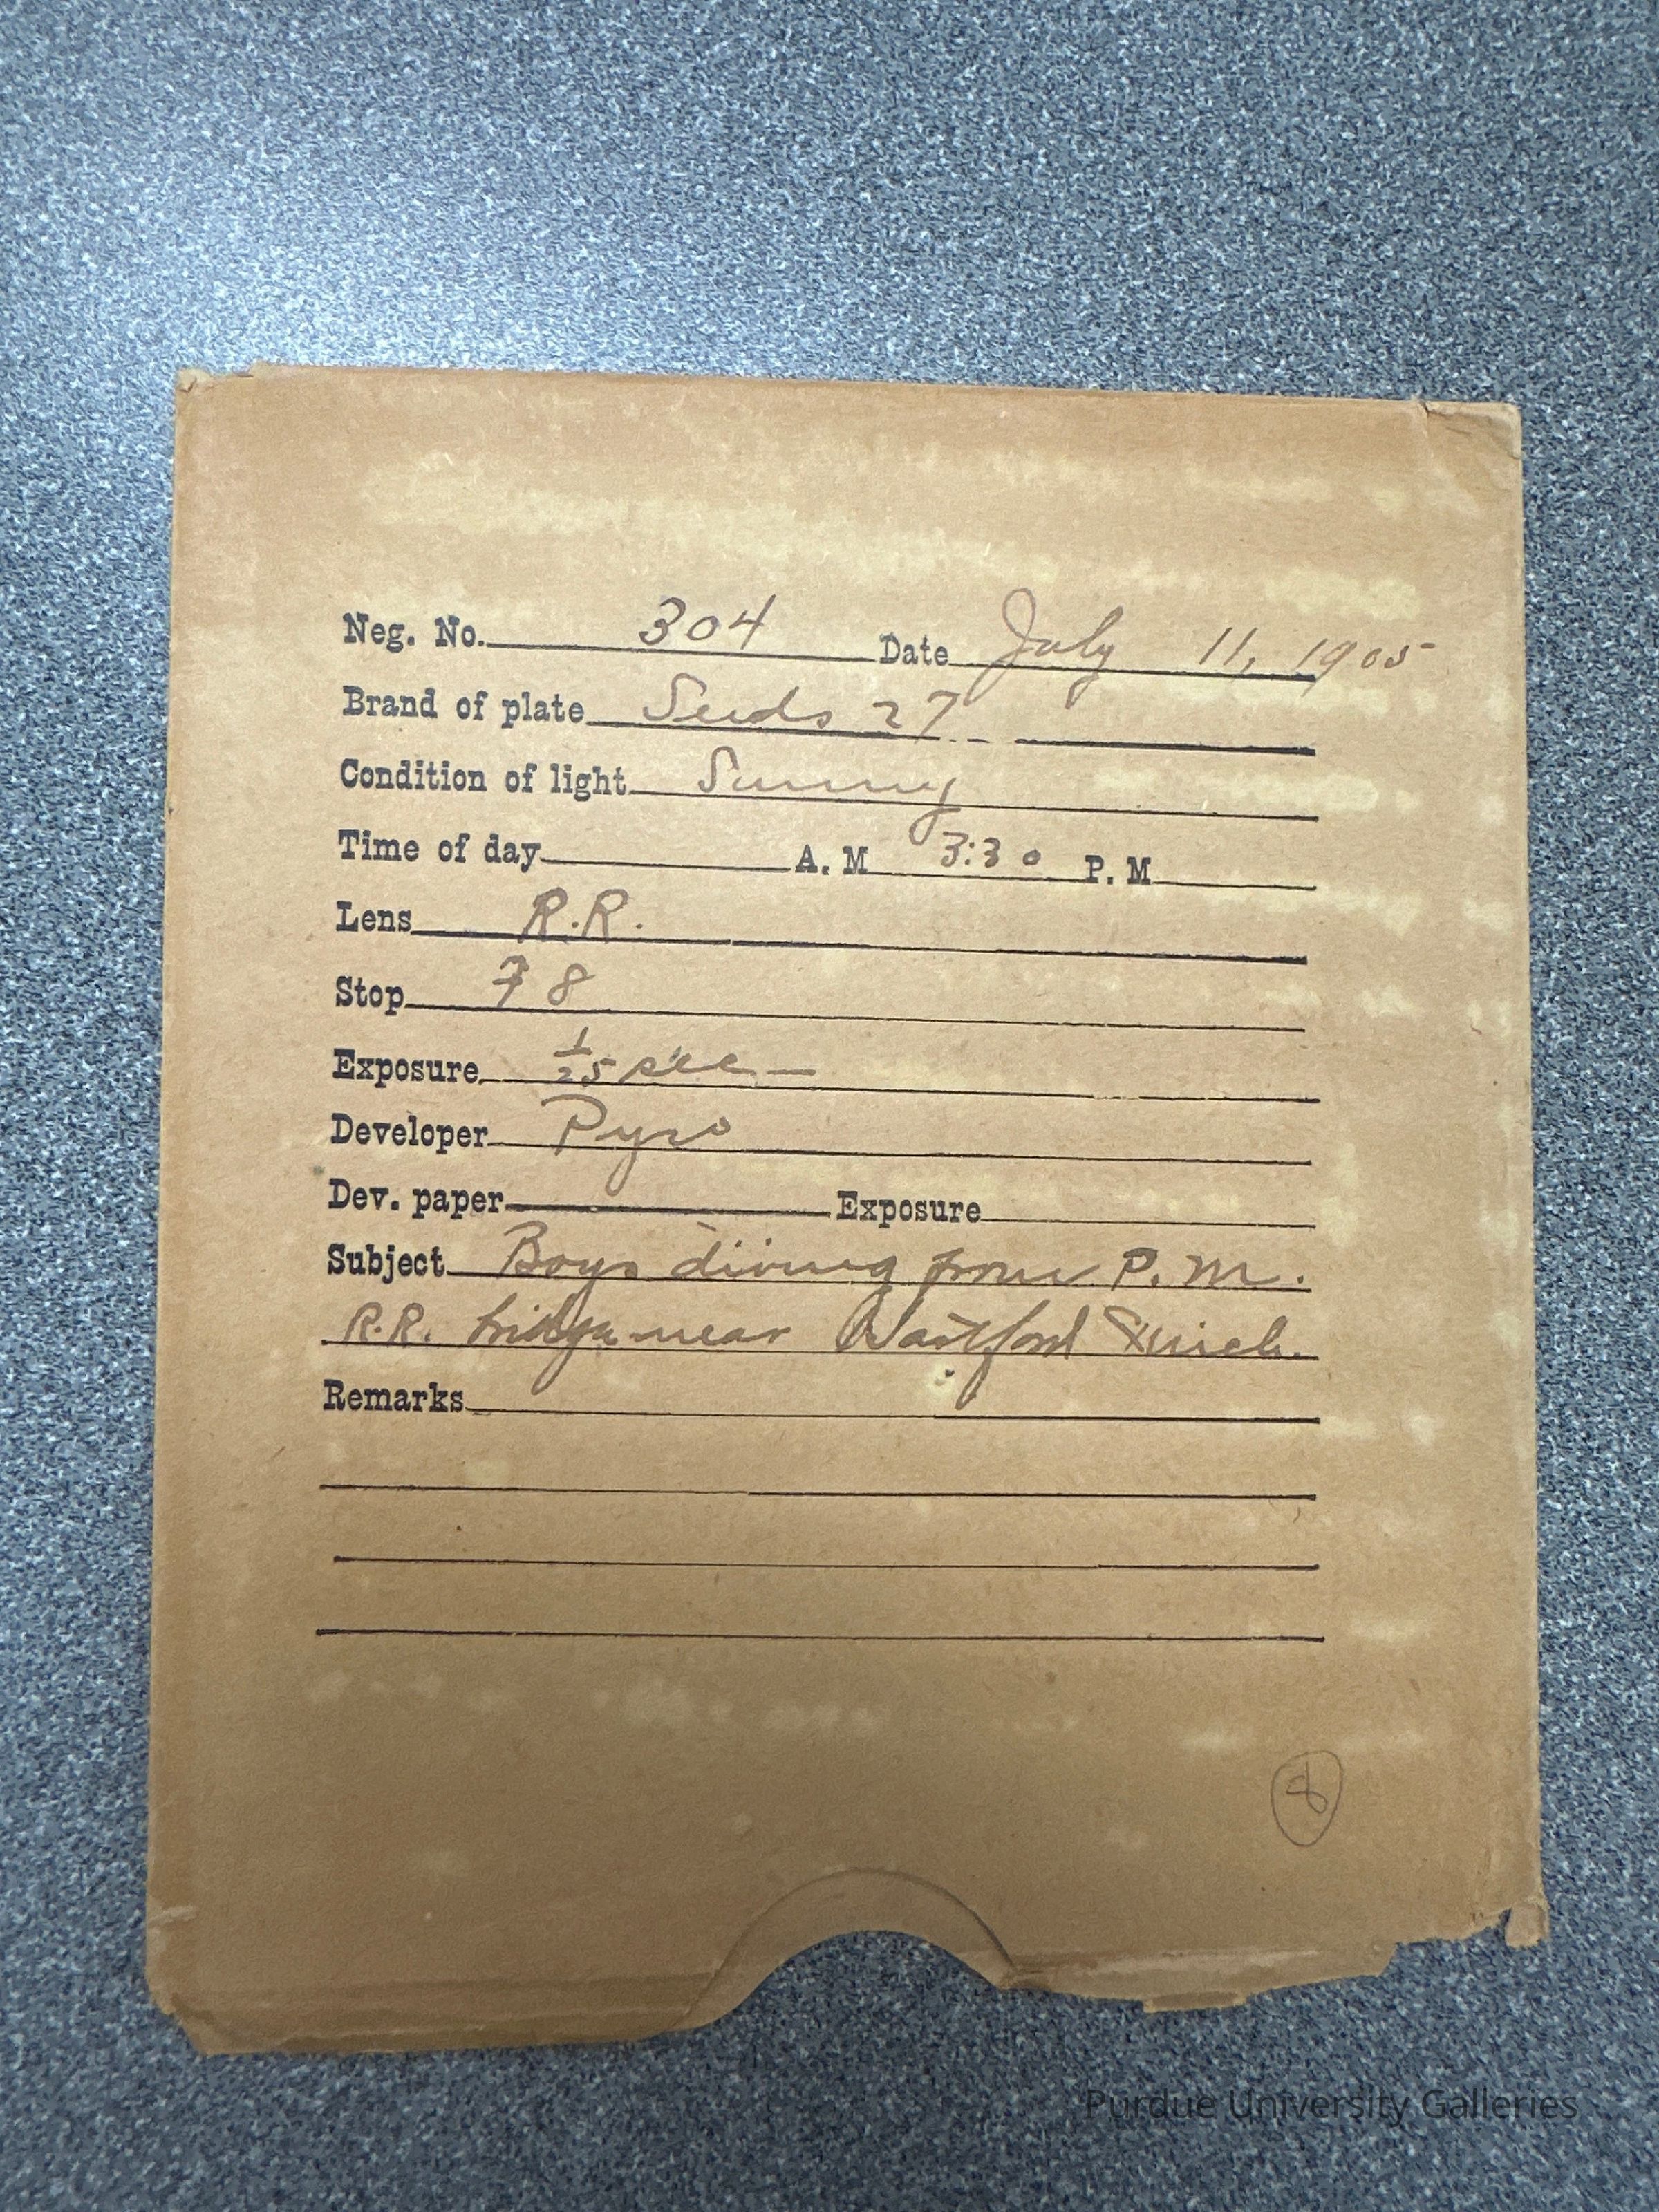 Neg. No. 304 Date July 11, 1905
Brand of plate Seeds 27
Condition of light Sunny
Time of day A. M 3:30 P. M
Lens R.R.
Stop 8
Exposure 1/25 sec —
Developer Pyro
Dev. paper Exposure
Subject Boys diving from P. M.
R.R. bridge near Mich.
Remarks
8
Purdue University Galleries